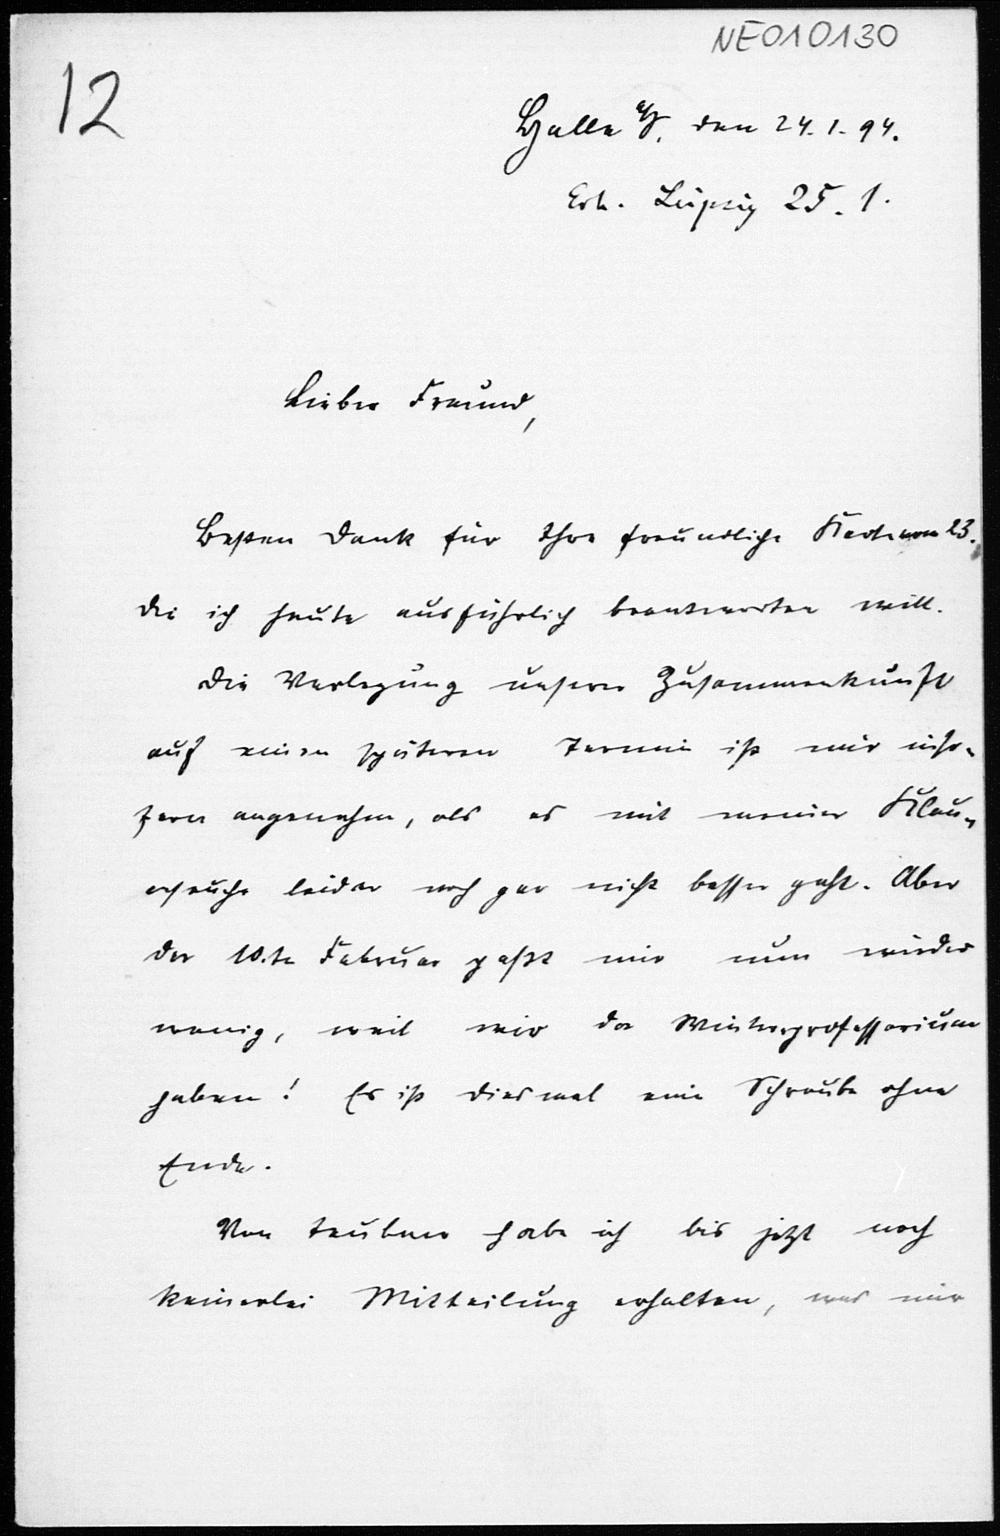 NE010130
12
Halle a/S. den 24.1.94.
Erh. Leipzig 25.1.
Lieber Freund,
Besten Dank für Ihre freundliche Karte vom 23.
die ich heute ausführlich beantworten will.
Die Verlegung unserer Zusammenkunft
auf einen späteren Termin ist mir inso-
fern angenehm, als es mit meiner Klau-
enseuche leider noch gar nicht besser geht. Aber
der 10.te Februar paßt mir nun wieder
wenig, weil wir da
haben! Es ist diesmal eine Schraube ohne
Ende.
Von Teubner habe ich bis jetzt noch
keinerlei Mitteilung erhalten, was mir